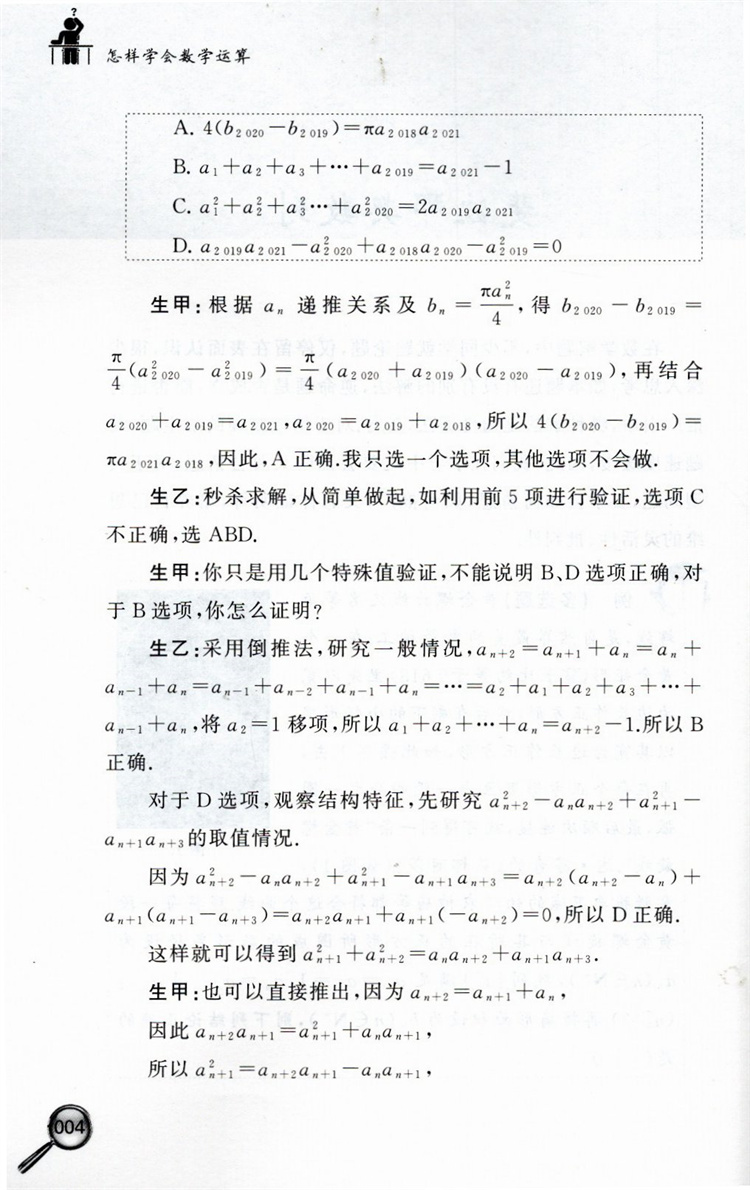 怎样学会数学运算
A. 4(b₂₀₂₀－b₂₀₁₉)＝πa₂₀₁₈a₂₀₂₁
B. a₁＋a₂＋a₃＋…＋a₂₀₁₉＝a₂₀₂₁－1
C. a₁²＋a₂²＋a₃²…＋a₂₀₂₀²＝2a₂₀₁₉a₂₀₂₁
D. a₂₀₁₉a₂₀₂₁－a₂₀₂₀²＋a₂₀₁₈a₂₀₂₀－a₂₀₁₉²＝0
生甲:根据 aₙ 递推关系及 bₙ＝πaₙ²/4,得 b₂₀₂₀－b₂₀₁₉＝
π/4(a₂₀₂₀²－a₂₀₁₉²)＝π/4(a₂₀₂₀＋a₂₀₁₉)(a₂₀₂₀－a₂₀₁₉),再结合
a₂₀₂₀＋a₂₀₁₉＝a₂₀₂₁,a₂₀₂₀＝a₂₀₁₉＋a₂₀₁₈,所以 4(b₂₀₂₀－b₂₀₁₉)＝
πa₂₀₂₁a₂₀₁₈,因此,A 正确.我只选一个选项,其他选项不会做.
生乙:秒杀求解,从简单做起,如利用前 5 项进行验证,选项 C
不正确,选 ABD.
生甲:你只是用几个特殊值验证,不能说明 B、D 选项正确,对
于 B 选项,你怎么证明?
生乙:采用倒推法,研究一般情况,aₙ₊₂＝aₙ₊₁＋aₙ＝aₙ＋
aₙ₋₁＋aₙ＝aₙ₋₁＋aₙ₋₂＋aₙ₋₁＋aₙ＝…＝a₂＋a₁＋a₂＋a₃＋…＋
aₙ₋₁＋aₙ,将 a₂＝1 移项,所以 a₁＋a₂＋…＋aₙ＝aₙ₊₂－1.所以 B
正确.
对于 D 选项,观察结构特征,先研究 aₙ₊₂²－aₙaₙ₊₂＋aₙ₊₁²－
aₙ₊₁aₙ₊₃的取值情况.
因为 aₙ₊₂²－aₙaₙ₊₂＋aₙ₊₁²－aₙ₊₁aₙ₊₃＝aₙ₊₂(aₙ₊₂－aₙ)＋
aₙ₊₁(aₙ₊₁－aₙ₊₃)＝aₙ₊₂aₙ₊₁＋aₙ₊₁(－aₙ₊₂)＝0,所以 D 正确.
这样就可以得到 aₙ₊₁²＋aₙ₊₂²＝aₙaₙ₊₂＋aₙ₊₁aₙ₊₃.
生甲:也可以直接推出,因为 aₙ₊₂＝aₙ₊₁＋aₙ,
因此 aₙ₊₂aₙ₊₁＝aₙ₊₁²＋aₙaₙ₊₁,
所以 aₙ₊₁²＝aₙ₊₂aₙ₊₁－aₙaₙ₊₁,
004